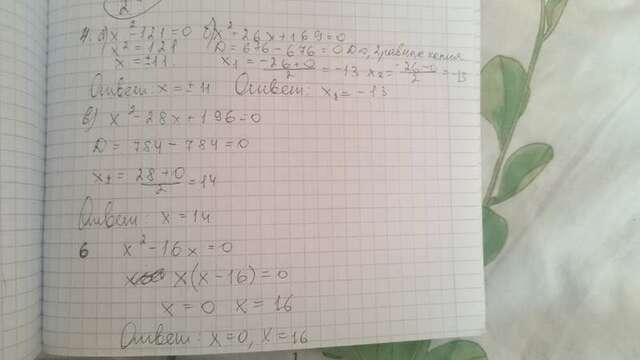 4. а) x²-121=0 б) x²-26x+169=0
x²=121 D=676-676=0 D=0, 2 равные корня
x=±11. x₁=-26+0/2=-13 x₂=-26-0/2=-13
Ответ: x=±11 Ответ: x₁=-13
в) x²-28x+196=0
D=784-784=0
x₁=28+0/2=14
Ответ: x=14
6 x²-16x=0
x(x-16)=0
x=0 x=16
Ответ: x=0, x=16